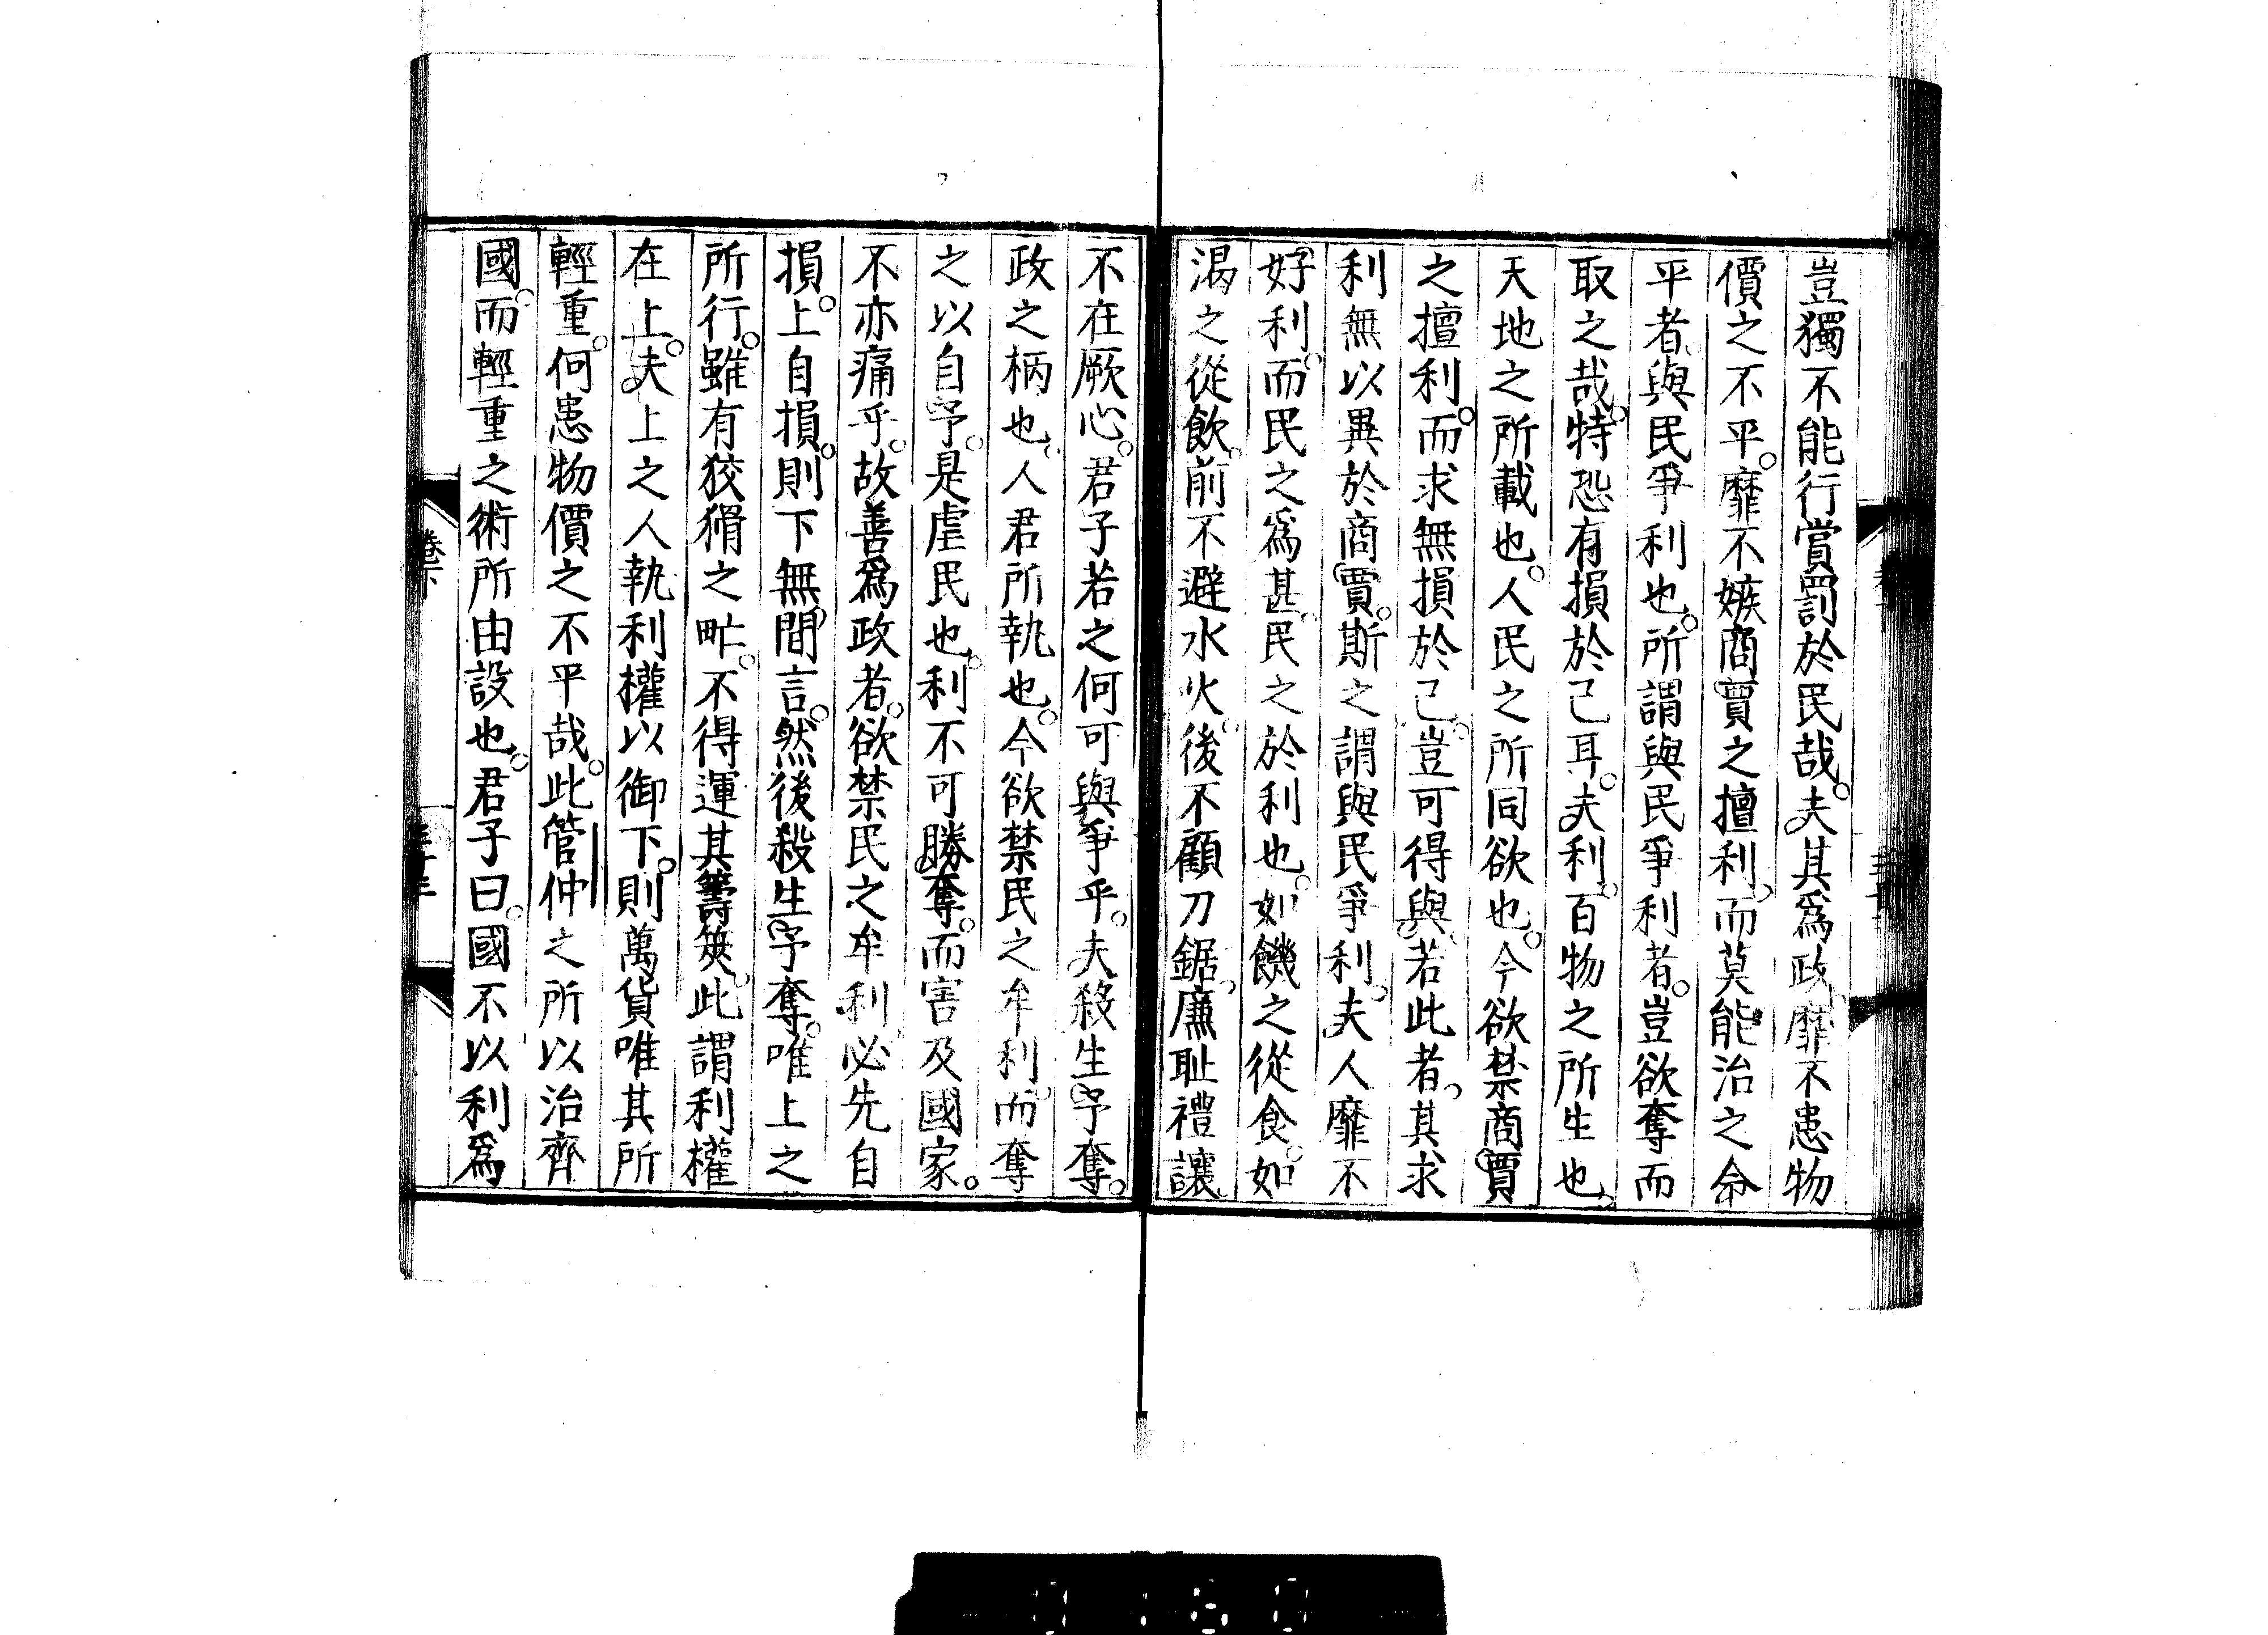 豈獨不能行賞罰於民哉。夫其爲政靡不患物
價之不平。靡不嫉商賈之擅利、而莫能治之命
平者、與民爭利也。所謂與民爭利者。豈欲奪而
取之哉。特恐有損於己耳。夫利。百物之所生也。
天地之所載也。人民之所同欲也。今欲禁商賈
之擅利。而求無損於己。豈可得與、若此者、其求
利無以異於商賈。斯之謂與民爭利。夫人靡不
好利。而民之爲甚。民之於利也。如饑之從食。如
渴之從飲。前不避水火。後不顧刀鋸。廉耻禮讓
不在厥心。君子若之何可與爭乎。夫殺生予奪。
政之柄也。人君所執也。今欲禁民之牟利。而奪
之以自予。是虐民也。利不可勝奪。而害及國家。
不亦痛乎。故善爲政者。欲禁民之牟利必先自
損。上自損。則下無間言。然後殺生予奪。唯上之
所行。雖有狡猾之甿。不得運其籌筴。此謂利權
在上。夫上之人執利權以御下。則萬貨唯其所
輕重。何患物價之不平哉。此管仲之所以治齊
國。而輕重之術所由設也。君子曰。國不以利爲
卷下